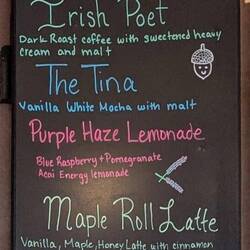 Irish Poet
Dark Roast coffee with sweetened heavy
cream and malt
The Tina
Vanilla White Mocha with malt
Purple Haze Lemonade
Blue Raspberry + Pomegranate
Acai Energy lemonade
Maple Roll Latte
Vanilla, Maple, Honey Latte with cinnamon